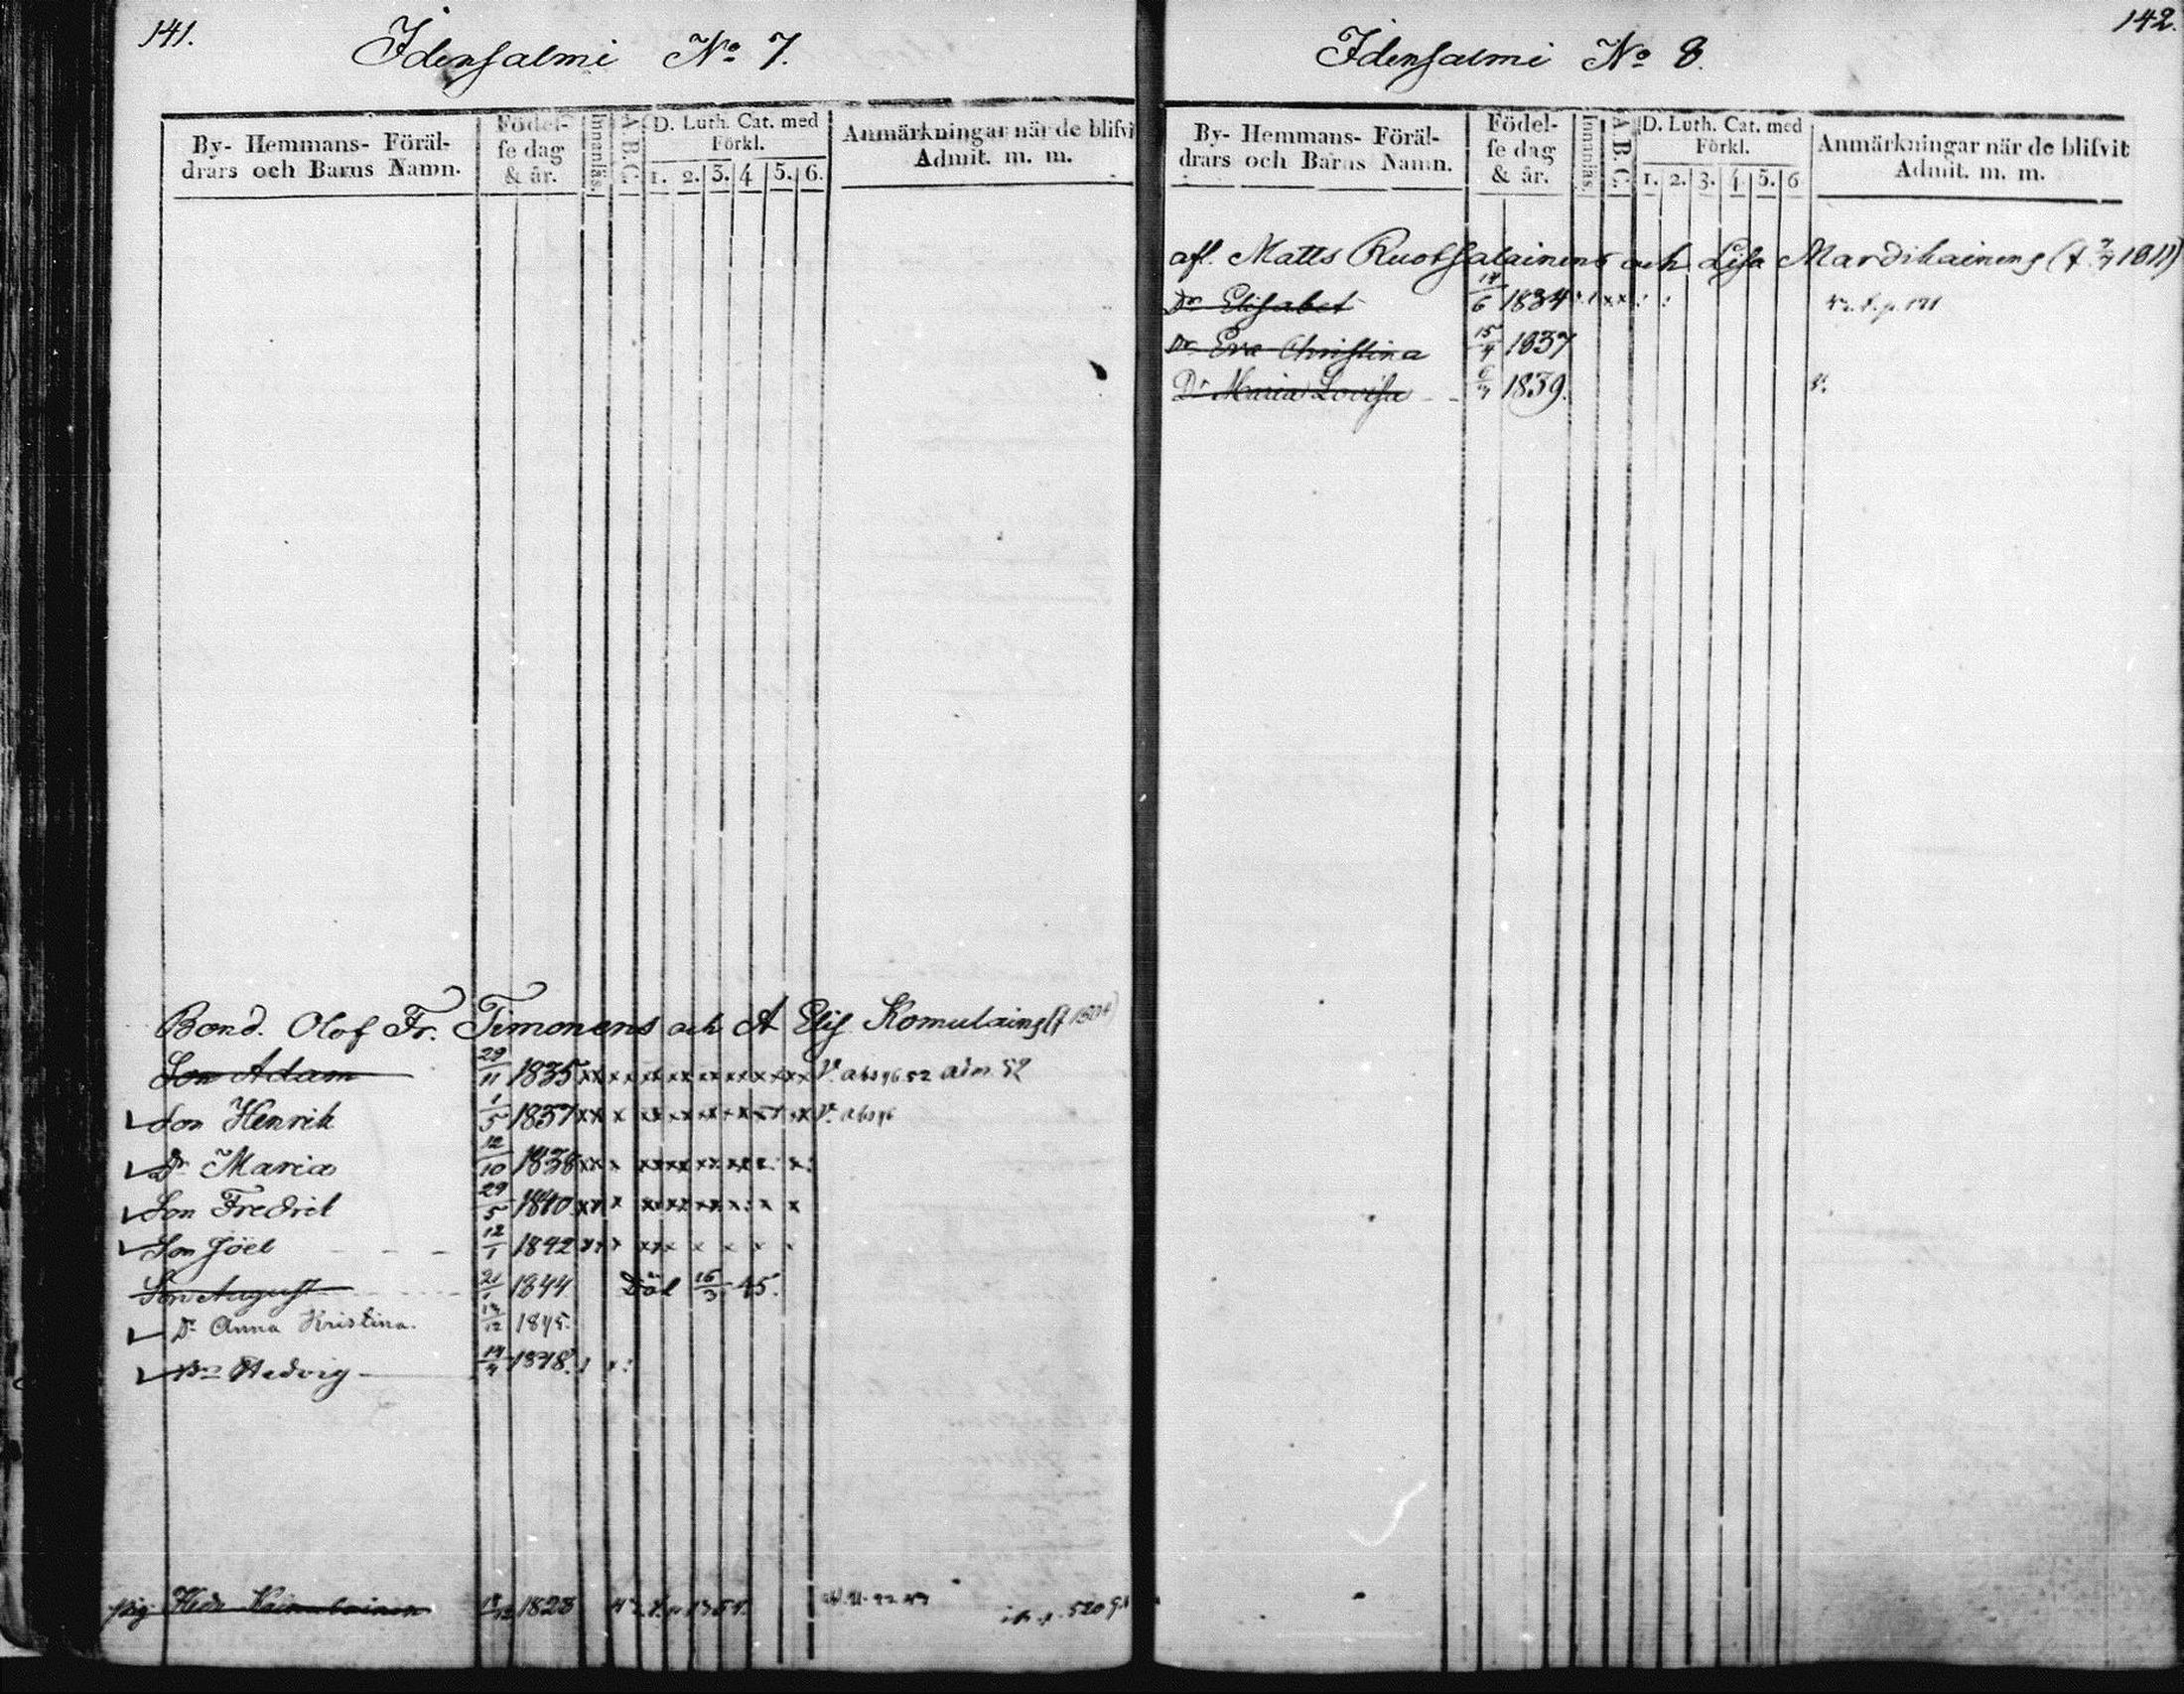 141.
Idensalmi No 7.
By- Hemmans- Föräl-
drars och Barns Namn.
Födel-
se dag
& år.
Innanläs.
A.B.C.
D. Luth. Cat. med
Förkl.
1. 2. 3. 4 5. 6.
Anmärkningar när de blifvi
Admit. m. m.
Bond. Olof Fr. Timonens och A Elis. Komulains
Son Adam 29/11 1835 adm. 52
Son Henrik 1/5 1837
Dr Maria 12/10 1838
Son Fredrik 29/5 1840
Son Joel 12/1 1842
Son August 21/1 1844. Död 16/3 45.
Dr Anna Kristina. 1845.
Dr Hedvig 14/4 1848.
pig. Hedv 1828
142.
Idensalmi No 8.
By- Hemmans- Föräl-
drars och Barns Namn.
Födel-
se dag
& år.
Innanläs.
A.B.C.
D. Luth. Cat. med
Förkl.
1. 2. 3. 4 5. 6
Anmärkningar när de blifvit
Admit. m. m.
afl. Matts Ruotsalainens och Lisa Mardikainens
Dr Elisabet 14/6 1834
Dr Eva Christina 15/4 1837
Dr Maria Lovisa 1839.